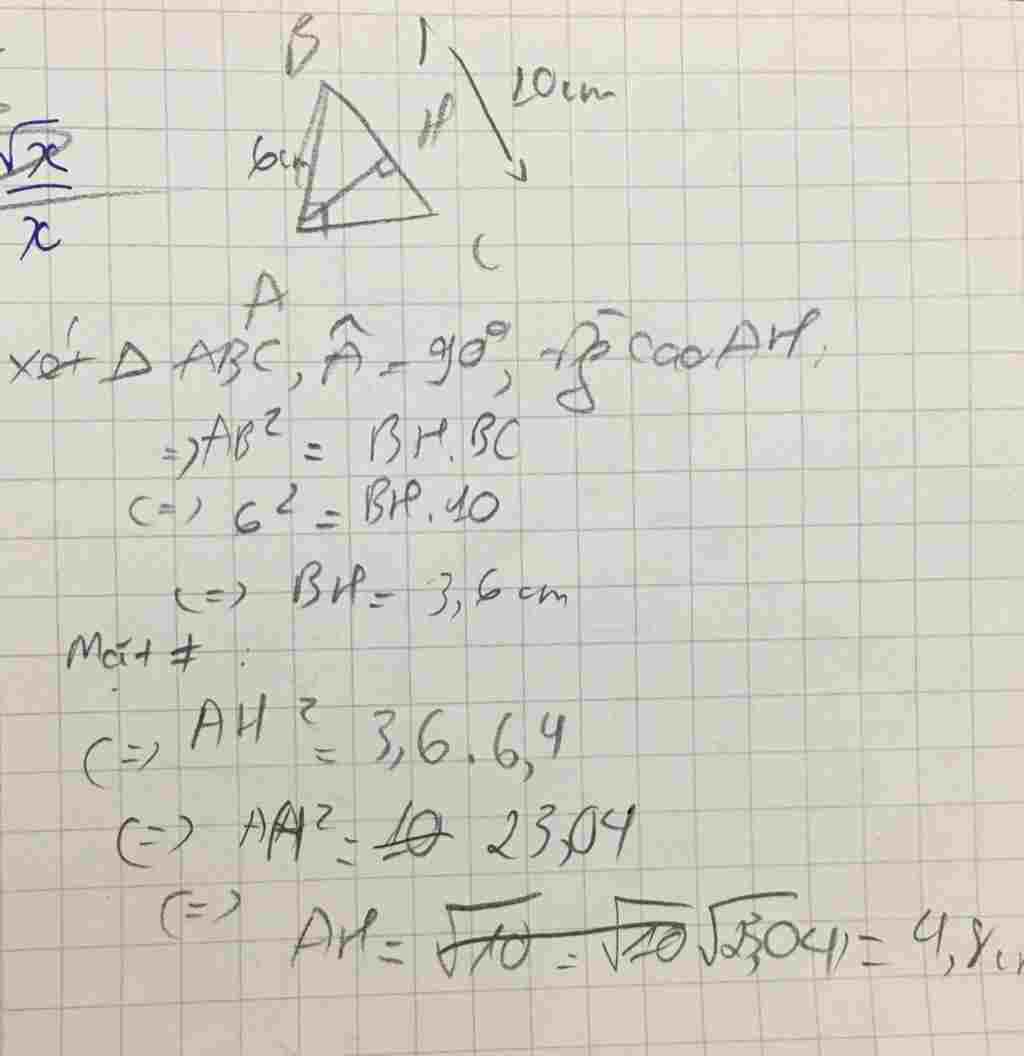 B
10cm
H
6cm
√x
x
C
A
xét Δ ABC, Â = 90°, đg cao AH.
=> AB² = BH.BC
<=> 6² = BH.10
<=> BH = 3,6 cm
Mặt ≠ :
<=> AH² = 3,6.6,4
<=> AH² = 10 23,04
<=> AH = √10 = √10 √23,04 = 4,8cm